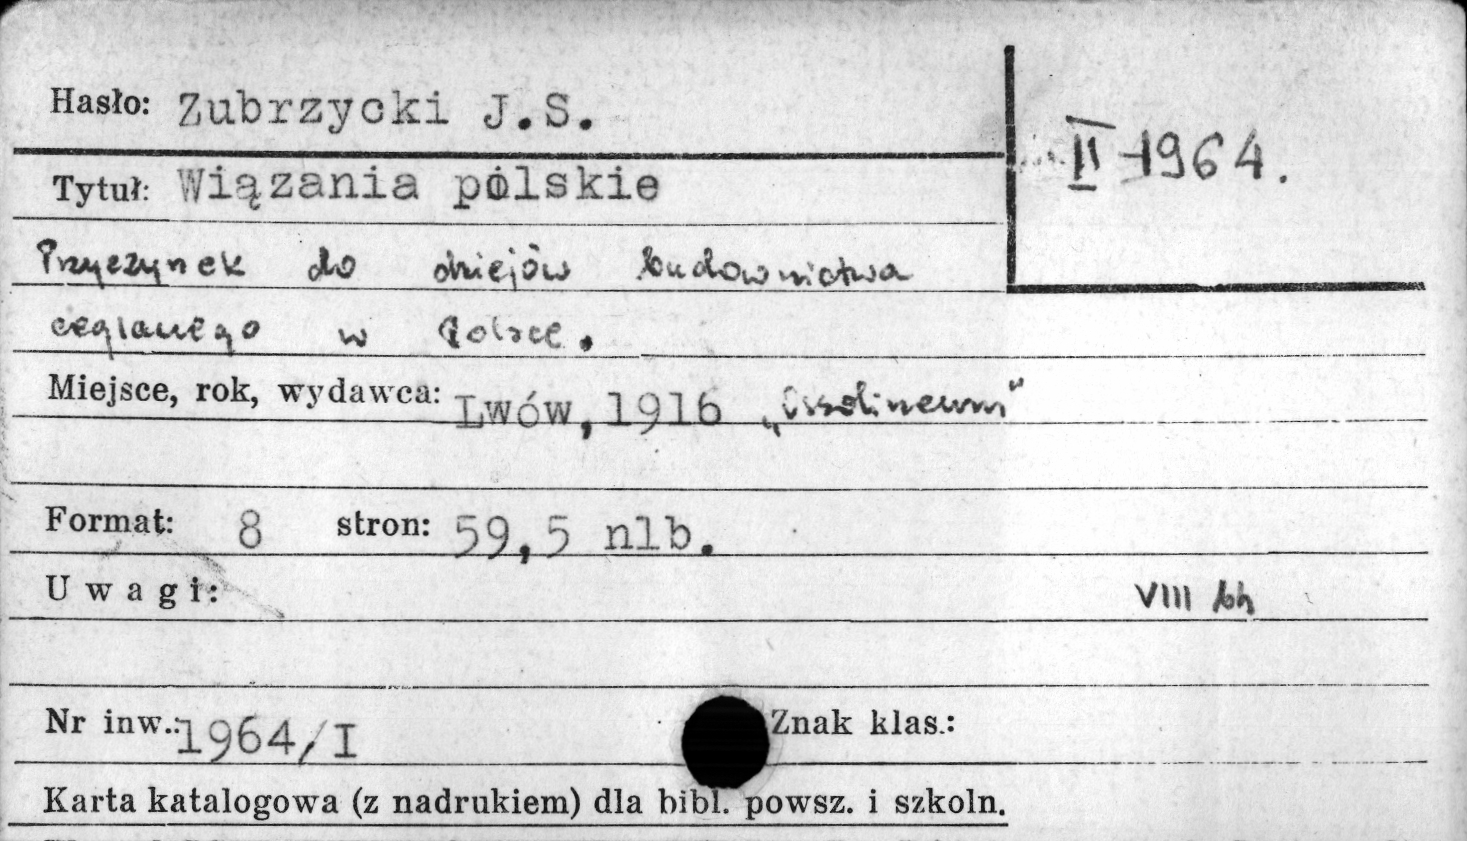 Hasło: Zubrzycki J.S.
II-1964.
Tytuł: Wiązania polskie
Przyczynek do dziejów budownictwa
ceglanego w Polsce.
Miejsce, rok, wydawca: Lwów, 1916 „Ossolineum"
Format: 8 stron: 59,5 nlb.
Uwagi:
VIII bh
Nr inw.: 1964/I Znak klas.:
Karta katalogowa (z nadrukiem) dla bibl. powsz. i szkoln.